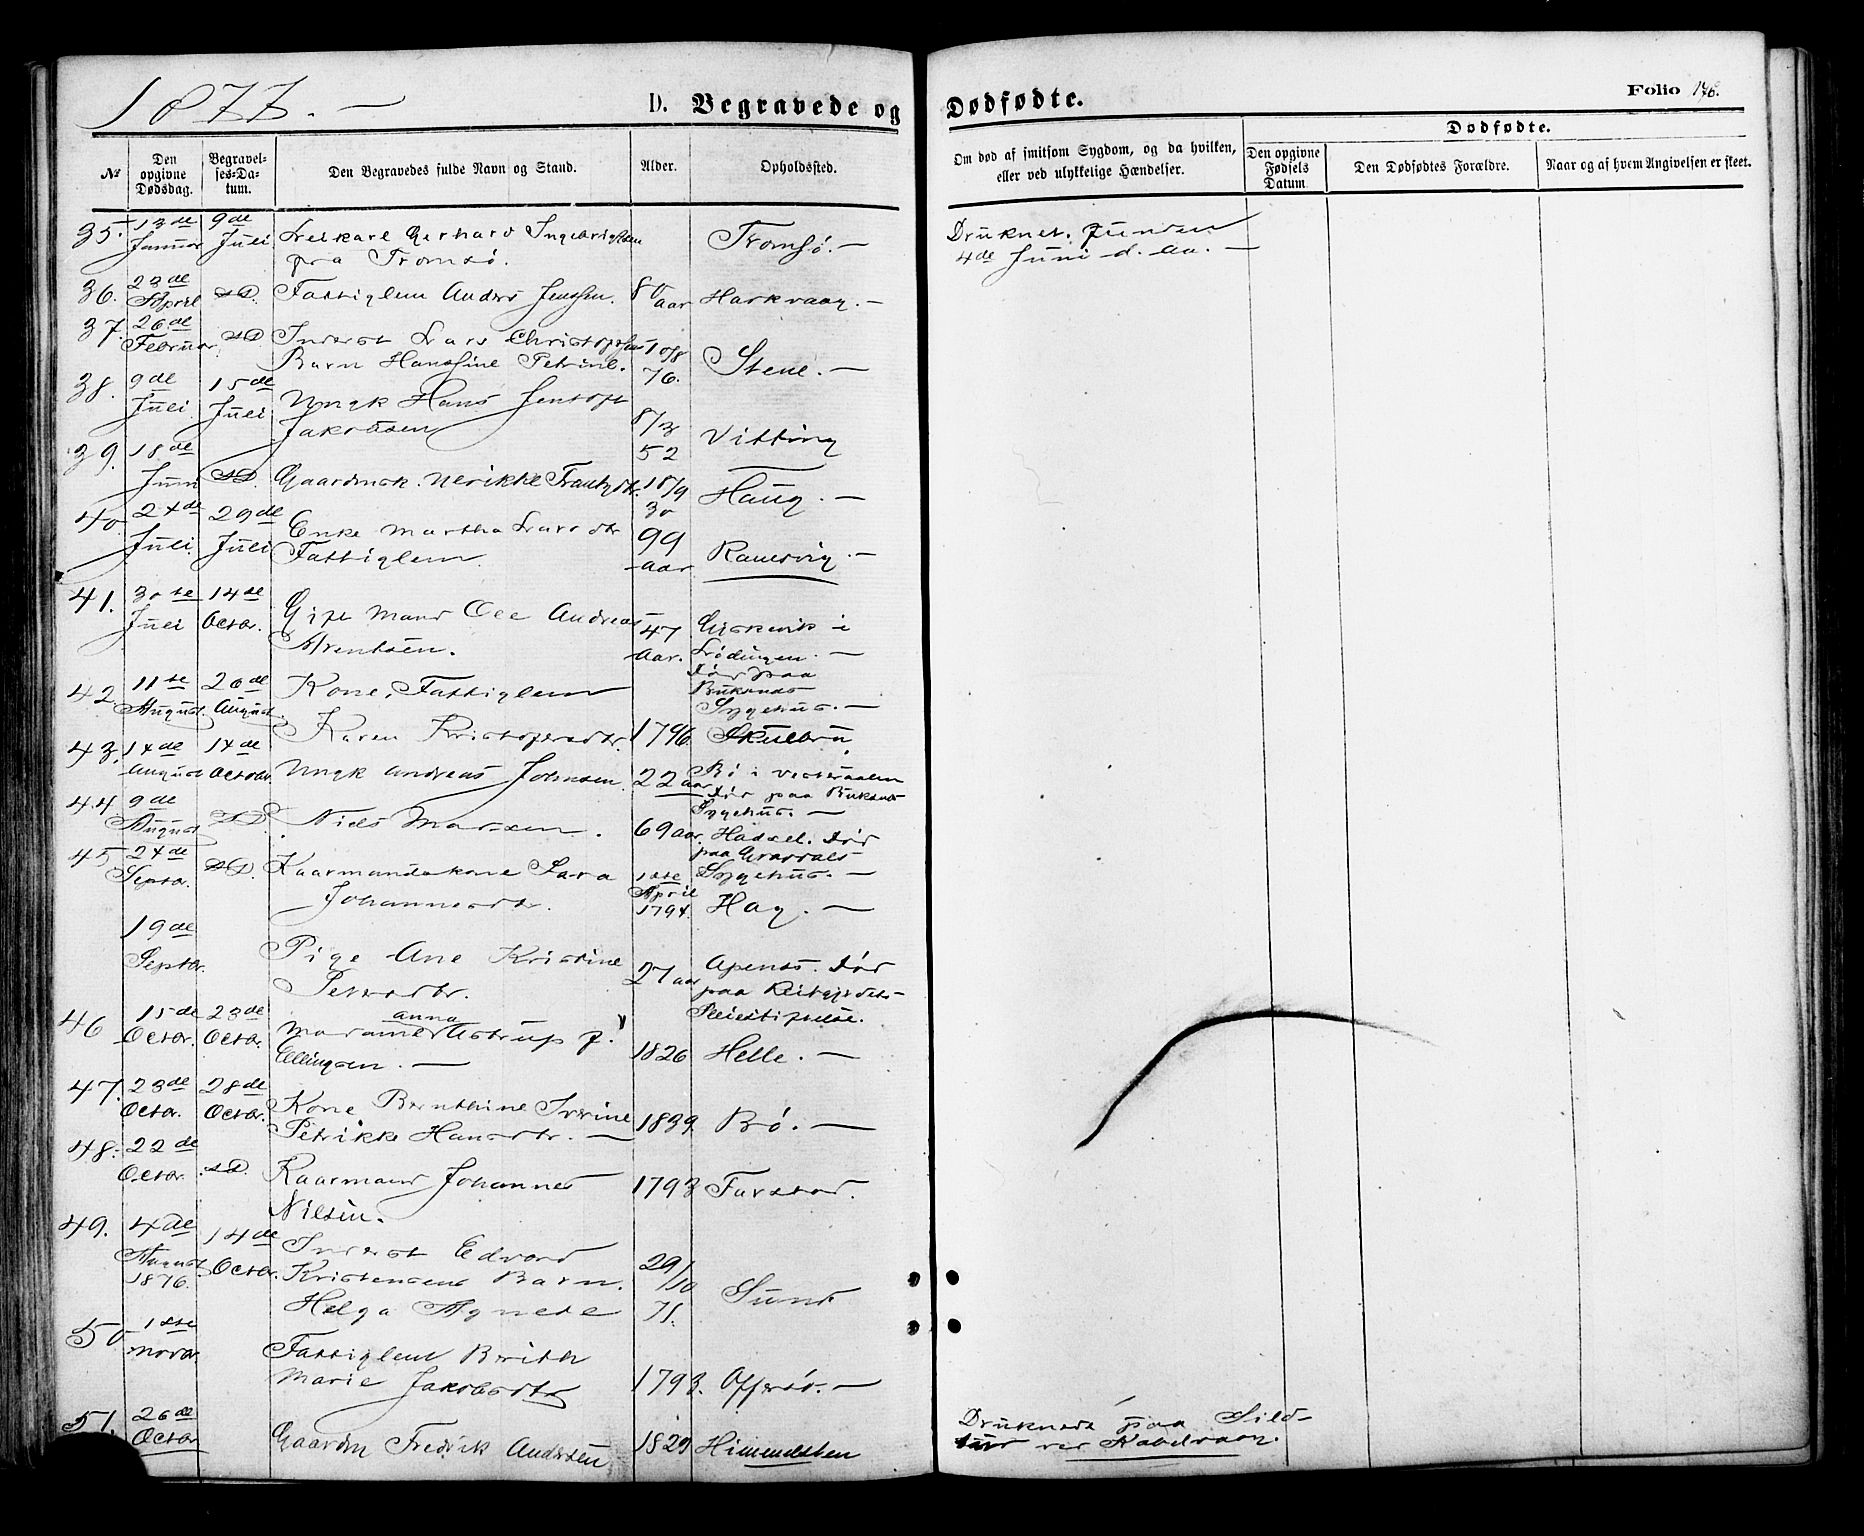 1877. —
D. Begravede og Dødfødte.
Folio 176.
№
Den opgivne Dødsdag.
Begravelses-Datum.
Den Begravedes fulde Navn og Stand.
Alder.
Opholdssted.
Om død af smitsom Sygdom, og da hvilken, eller ved ulykkelige Hændelser.
Dødfødte.
Den opgivne Fødsels Datum
Den Dødfødtes Forældre.
Naar og af hvem Angivelsen er skeet.
35. 13de Januar 9de Juli Gerhard Ingebrigtsen Tromsø. — Druknet. Funden
fra Tromsø. 4de Juni d. Aa. —
36. 23de April s.D. Fattiglem Anders Jensen. 80 Aar —
37. 26de Februar s.D. Inderst Lars Christophersens 10/8
Barn Hansine Petrine. 76. Stene. —
38. 9de Juli 15de Juli Ungk Hans Jentoft
Jakobsen 8/3 52 Vitting
39. 18de Juni s.D. Gaardmsk. Ulrikke Frantzdtr. 18/9 30 Haug. —
40 24de Juli 29de Juli Enke Martha Larsdtr
Fattiglem. 99 Aar Ramsvig. —
41. 30te Juli 14de Octbr. Gift Mand Ole Andreas
Arentsen. 47 Aar. i Lødingen. — Død paa Buksnes Sygehus. —
42. 11te August. 20de August. Kone, Fattiglem
Karen Kristofersdtr. 1796. Skulbru
43. 14de August 14de Octobr. Ungk Andreas Johnsen. 22 aar Bø i Vesteraalen Død paa Buksnes Sygehus. —
44. 9de August s.D. Niels Marsen. 69 aar. Hadsel. Død paa Gravdals Sygehus. —
45. 24de Septbr. s.D. Kaarmandskone Sara
Johannesdtr. 1ste April 1794. Hag. —
19de Septbr. Pige Ane Kristine
Pedersdtr. 27 aar Død paa Reitgjerdets Pleiestiftelse.
46 15de Octbr. 23de Octbr. Madame Anna Astrup f.
Ellingsen. — 1826 Helle. —
47. 23de Octbr. 28de Octbr. Kone Bernthine Iverine
Petrikke Hansdtr. — 1839. Bø. —
48. 22de Octbr. s.D. Kaarmand Johannes
Nilsen. 1793 Farstad.
49. 4de August 1876. 14de Octbr. Inderst Edvard
Kristensens Barn.
Helga Agnete 29/10 71. Sund
50 1ste Novbr. Fattiglem Berith
Marie Jakobsdtr 1793. Offersø. —
51. 26de Octbr Gaardm Fredrik Andersen 1829 Himmelsten Druknede paa Sild-
ved Kabelvaag.